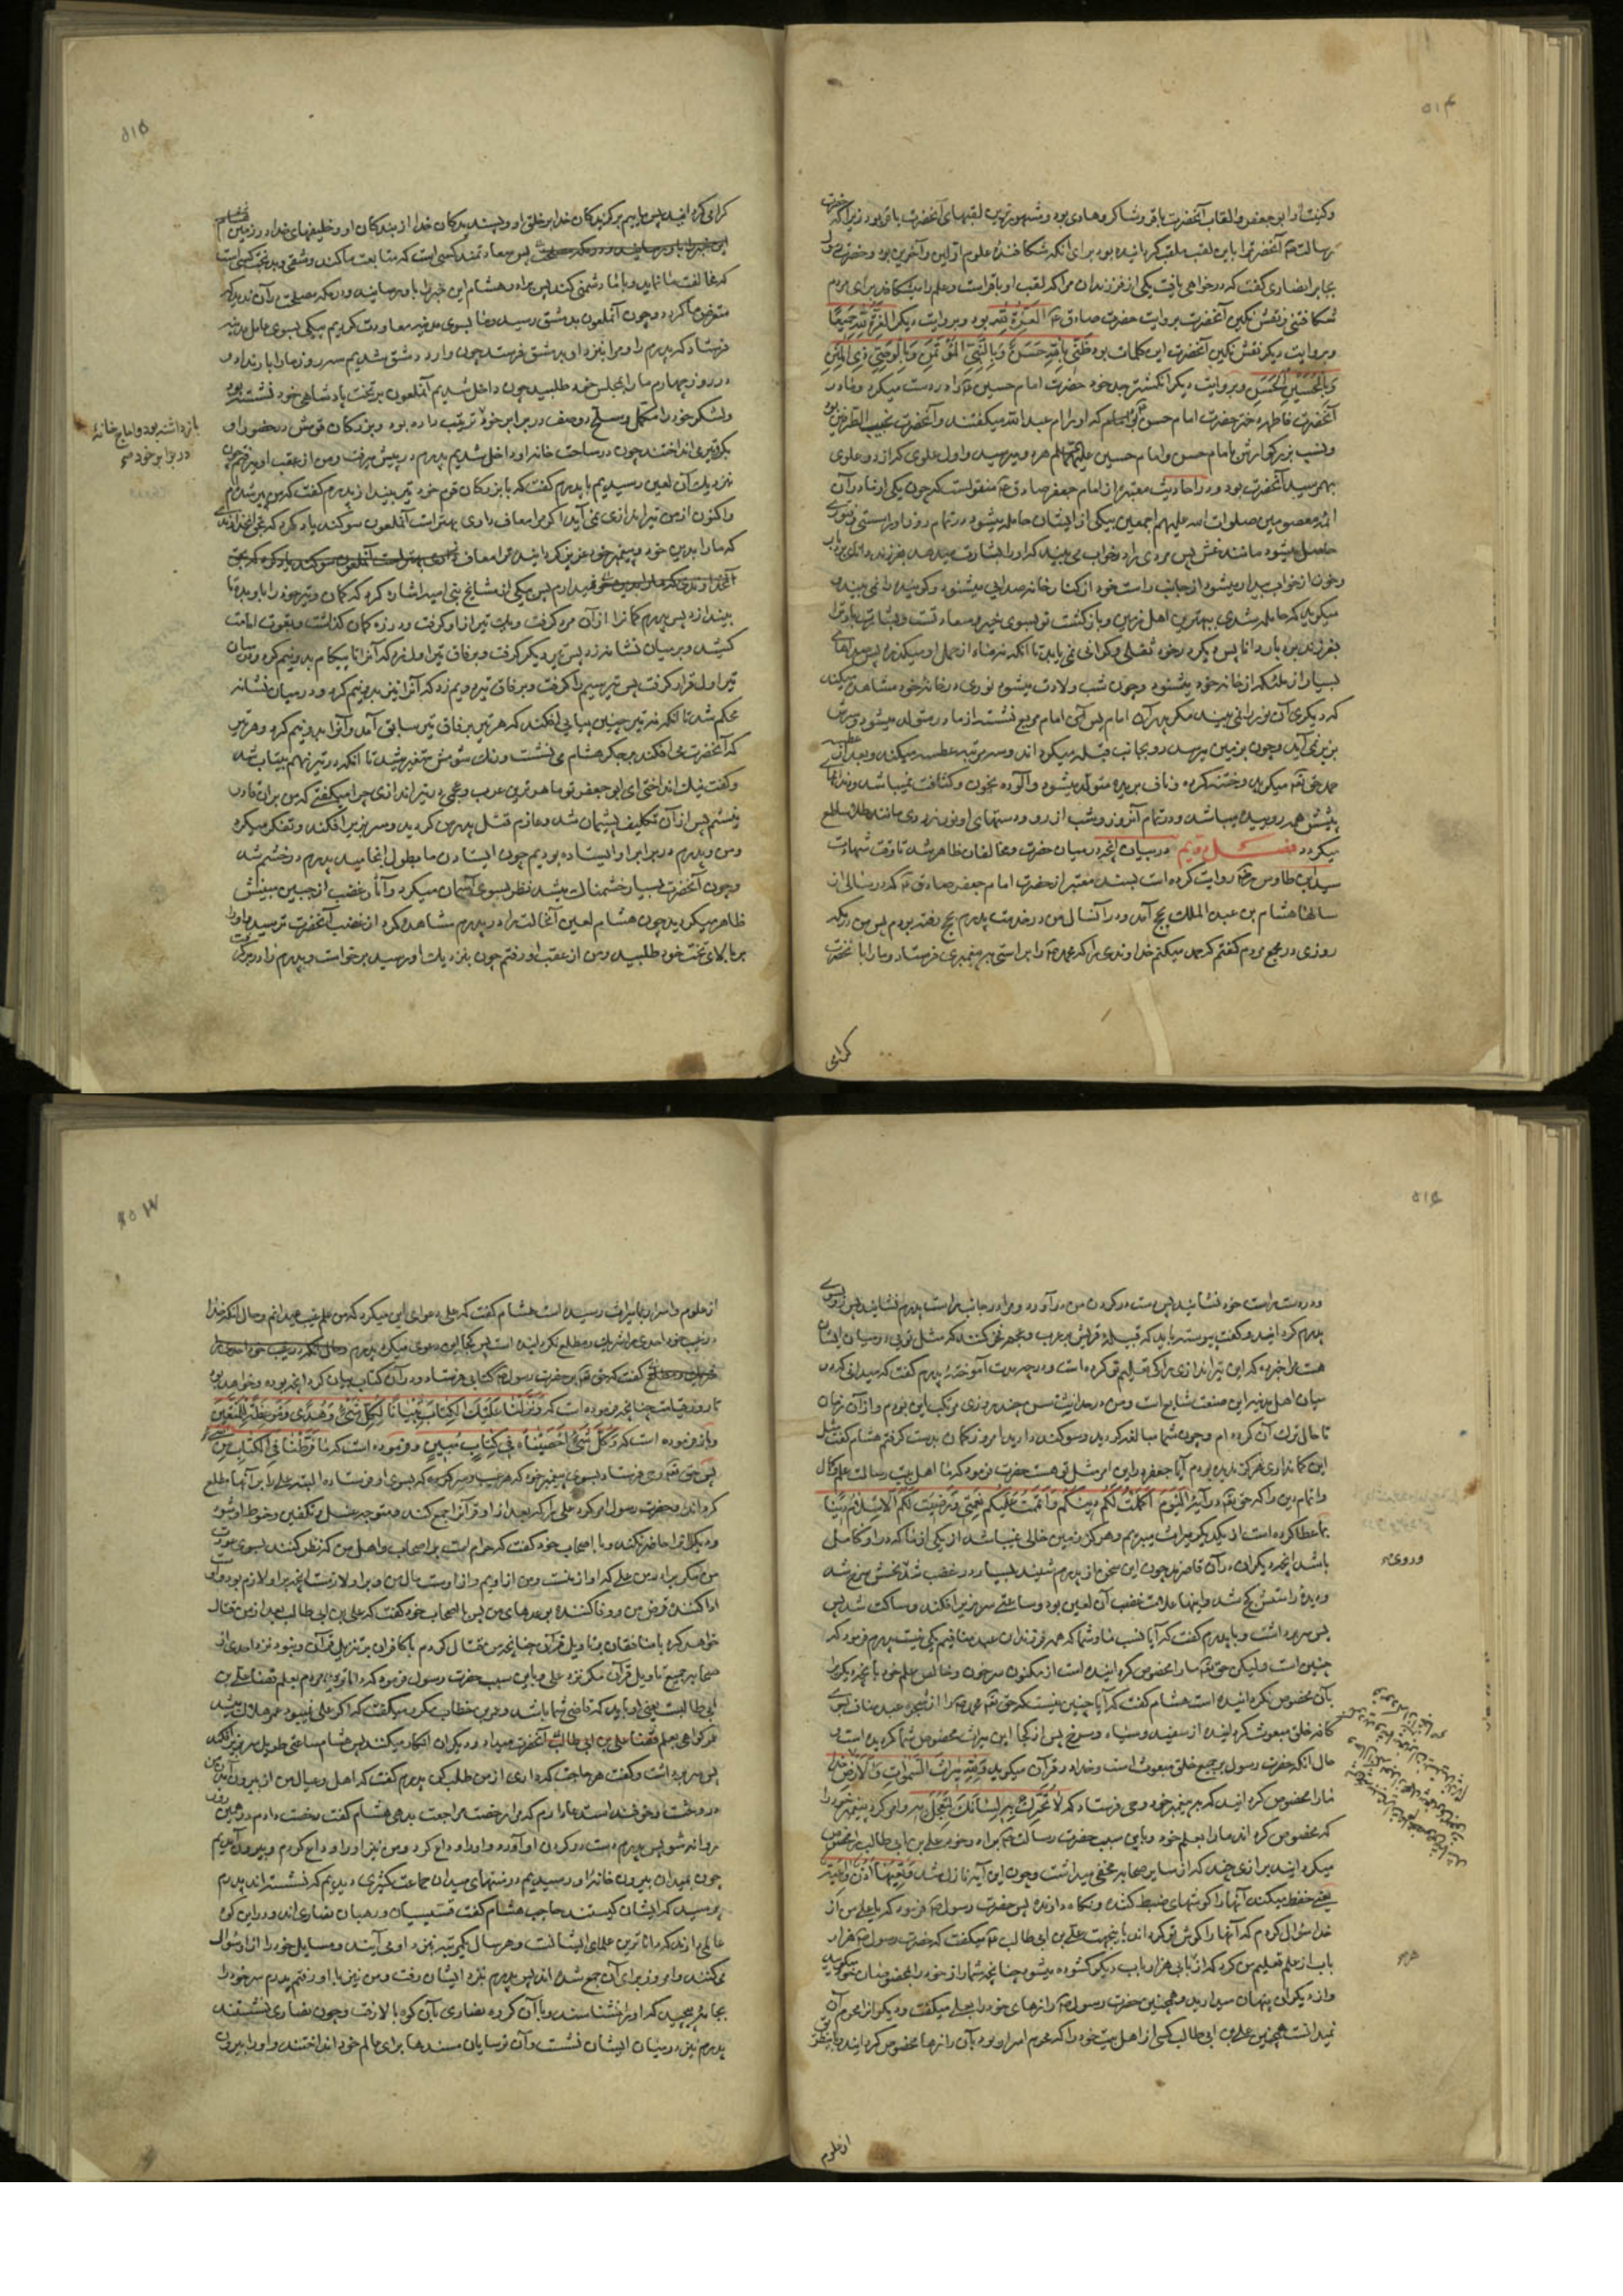 ۵۱۴
وکنیت او ابو جعفر و القاب آنحضرت باقر و شاکر و هادی بود و مشهورترین لقبهای آنحضرت باقر بود زیرا که حضرت
رسالت آنحضرت را باین لقب ملقب گردانیده بود برای آنکه شکافنده علوم اولین و آخرین بود و حضرت رسول
بجابر انصاری گفت که در خواهی یافت یکی از فرزندان مرا که لقب او باقر است و علم را میشکافد برای مردم
شکافتنی و نقش نگین آنحضرت بروایت حضرت صادق العزة لله بود و بروایت دیگر العزة لله جمیعا
و بروایت دیگر نقش نگین آنحضرت این کلمات بود ظنی بالله حسن و بالنبی المؤتمن و بالوصی ذی المنن
و بالحسین و الحسن و بروایت دیگر انگشتر جد خود حضرت امام حسین را در دست میکرد و مادر
آنحضرت فاطمه دختر حضرت امام حسن بود که او را ام عبد الله میگفتند و آنحضرت نجیب الطرفین بود
و نسب بزرگوارش بامام حسن و امام حسین علیهما السلم هر دو میرسید و اول علوی که از دو علوی
بهم رسید آنحضرت بود و در احادیث معتبره از امام جعفر صادق منقولست که چون یکی از مادران
ائمه معصومین صلوات الله علیهم اجمعین بیکی از ایشان حامله میشود در تمام روز او را سستی و فتوری
حاصل میشود مانند غش پس مردی را در خواب می بیند که او را بشارت میدهد بفرزند دانای بردبار
و چون از خواب بیدار میشود از جانب راست خود از کنار خانه صدایی میشنود و گوینده را نمی بیند که
میگوید که حامله شدی به بهترین اهل زمین و بازگشت تو بسوی خیر و سعادتست و بشارت باد ترا
بفرزند بردبار دانا پس دیگر در خود ثقلی و گرانی نمی یابد تا آنکه نه ماه از حمل او میگذرد پس صداهای
بسیار از ملئکه از خانه خود میشنود و چون شب ولادت میشود نوری در خانه خود مشاهده میکند
که دیگری آن نور را نمی بیند مگر پدر آن امام پس آن امام مربع نشسته از مادر متولد میشود و سرش
بزیر نمی آید و چون بزمین میرسد رو بجانب قبله میگرداند و سه مرتبه عطسه میکند و بعد از عطسه
حمد حق تعالی میگوید و ختنه کرده و ناف بریده متولد میشود و آلوده بخون و کثافت نمیباشد و دندانهای
پیشش همه روییده میباشد و در تمام آن روز و شب از رو و دستهای او نور زردی مانند طلا ساطع
میگردد فصل دویم در بیان آنچه در میان حضرت و مخالفان ظاهر شد تا وقت شهادت
سید ابن طاوس روایت کرده است بسند معتبر از حضرت امام جعفر صادق که در سالی از
سالها هشام بن عبد الملک بحج آمد و در آنسال من در خدمت پدرم بحج رفته بودم پس من در مکه
روزی در مجمع مردم گفتم که حمد میکنم خداوندی را که محمد را براستی به پیغمبری فرستاد و ما را بآنحضرت
گرامی
۵۱۵
گرامی گردانید پس ماییم برگزیدگان خدا بر خلق او و پسندیدگان خدا از بندگان او و خلیفهای خدا در زمین
پس سعادتمند کسی است که متابعت ما کند و شقی و بدبخت کسی است
که مخالفت ما نماید و با ما دشمنی کند پس برادر هشام این خبر را باو رسانید و در مکه مصلحت در آن ندید که
متعرض ما گردد و چون آنملعون بدمشق رسید و ما بسوی مدینه معاودت کردیم پیکی بسوی عامل مدینه
فرستاد که پدرم را و مرا بنزد او بدمشق فرستد چون وارد دمشق شدیم سه روز ما را بار نداد
در روز چهارم ما را بمجلس خود طلبید چون داخل شدیم آنملعون بر تخت پادشاهی خود نشسته بود
و لشکر خود را مکمل و مسلح دو صف در برابر خود ترتیب داده بود و بزرگان قومش در حضور او
بگرو تیر می انداختند چون در ساحت خانه او داخل شدیم پدرم در پیش میرفت و من از عقب او میرفتم چون
بنزدیک آن لعین رسیدیم با پدرم گفت که با بزرگان قوم خود تیر بینداز پدرم گفت که من پیر شده ام
و اکنون از من تیر اندازی نمی آید اگر مرا معاف داری بهتر است آنملعون سوگند یاد کرد که بحق آنخداوندی
که ما را بدین خود و پیغمبر خود عزیز گردانیده ترا معاف
نمیدارم پس بیکی از مشایخ بنی امیه اشاره کرد که کمان و تیر خود را باو بده تا
بیندازد پس پدرم کمان را از آن مرد گرفت و یک تیر از او گرفت و در زه کمان گذاشت و بقوت امامت
کشید و بر میان نشانه زد پس تیر دیگر گرفت و بر فاق تیر اول زد که آنرا تا پیکام بدو نیم کرد و در میان
تیر اول قرار گرفت پس تیر سیم را گرفت و بر فاق تیر دویم زد که آنرا نیز بدو نیم کرد و در میان نشانه
محکم شد تا آنکه نه تیر چنین پیاپی افکند که هر تیر بر فاق تیر سابق آمد و آنرا بدو نیم کرد و هر تیر
که آنحضرت می افکند بر جگر هشام می نشست و رنگ شومش متغیر میشد تا آنکه در تیر نهم بیتاب شد
و گفت نیک انداختی ای ابو جعفر تو ماهرترین عرب و عجمی در تیر اندازی چرا میگفتی که من بر آن قادر
نیستم پس از آن تکلیف پشیمان شد و عازم قتل پدر من گردید و سر بزیر افکند و تفکر میکرد
و من و پدرم در برابر او ایستاده بودیم چون ایستادن ما بطول انجامید پدرم در خشم شد
و چون آنحضرت بسیار خشمناک میشد نظر بسوی آسمان میکرد و آثار غضب از جبین مبینش
ظاهر میگردید چون هشام لعین آنحالت را در پدرم مشاهده کرد از غضب آنحضرت ترسید و او را
بر بالای تخت خود طلبید و من از عقب او رفتم چون بنزدیک او رسید برخواست و پدرم را در بر گرفت
باز داشته بود و اماج خانه
در برابر خود
و در دست راست خود نشانید پس دست در گردن من در آورد و مرا در جانب راست پدرم نشانید پس رو بسوی
پدرم گردانید و گفت پیوسته باید که قبیله قریش بر عرب و عجم فخر کنند که مثل تویی در میان ایشان
هست مرا خبر ده که این تیر اندازی را که تعلیم تو کرده است و در چه مدت آموخته پدرم گفت که میدانی که در
میان اهل مدینه این صنعت شایع است و من در حداثت سن چند روزی مرتکب این بودم و از آن زمان
تا حال ترک آن کرده ام و چون شما مبالغه کردید و سوگند دادید امروز کمان بدست گرفتم هشام گفت مثل
این کمانداری هرگز ندیده بودم آیا جعفر در این امر مثل تو هست حضرت فرمود که ما اهل بیت رسالت علم و کمال
و اتمام دین را که حق تعالی در آیه الیوم اکملت لکم دینکم و اتممت علیکم نعمتی و رضیت لکم الاسلام دینا
بما عطا کرده است از یکدیگر میراث میبریم و هرگز زمین خالی نمیباشد از یکی از ما که در او کامل
باشد آنچه دیگران در آن قاصرند چون این سخن را از پدرم شنید بسیار در غضب شد و رویش سرخ شد
و دیده راستش کج شد و اینها علامت غضب آن لعین بود و ساعتی سر بزیر افکند و ساکت شد پس
پس سر برداشت و با پدرم گفت که آیا نسب ما و شما که همه فرزندان عبد منافیم یکی نیست پدرم فرمود که
چنین است و لیکن حق تعالی ما را مخصوص گردانیده است از مکنون سر خود و خالص علم خود بآنچه دیگری را
بآن مخصوص نگردانیده است هشام گفت که آیا چنین نیست که حق تعالی محمد را از شجره عبد مناف بسوی
کافه خلق مبعوث گردانیده از سفید و سیاه و سرخ پس از کجا این میراث مخصوص شما گردیده است و
حال آنکه حضرت رسول بر جمیع خلق مبعوث است و خدا در قرآن میگوید و لله میراث السموات و الارض
ما را مخصوص گردانید که بر پیغمبر خود وحی فرستاد که لا تحرک به لسانک لتعجل به و امر کرد پیغمبر خود را
که مخصوص گرداند ما را بعلم خود و باین سبب حضرت رسالت برادر خود علی بن ابی طالب را مخصوص
میگردانید برازی چند که از سایر صحابه مخفی میداشت و چون این آیه نازل شد و تعیها اذن واعیة
یعنی حفظ میکند آنها را گوشهای ضبط کننده و نگاه دارنده پس حضرت رسول فرمود که یا علی من از
خدا سؤال کردم که آنها را گوش تو گرداند باینجهت علی بن ابی طالب میگفت که حضرت رسول هزار
باب از علم تعلیم من کرد که از هر بابی هزار باب دیگر گشوده میشود چنانچه شما راز خود را بمخصوصان خود میگویید
و از دیگران پنهان میدارید و همچنین حضرت رسول رازهای خود را بعلی میگفت و دیگران را محرم آن
نمیدانست همچنین علی بن ابی طالب کسی از اهل بیت خود را که محرم اسرار بود بآن رازها مخصوص گردانید و باین طریق
از علوم
از علوم و اسرار بما میراث رسیده است هشام گفت که علی دعوای این میکرد که من علم غیب میدانم و حال آنکه خدا
در غیب خود احدی را شریک و مطلع نگردانیده است پس از کجا این دعوی میکرد پدرم
گفت که حق تعالی بر حضرت رسول کتابی فرستاد و در آن کتاب بیان کرد آنچه بوده و خواهد بود
تا روز قیامت چنانچه فرموده است که و نزلنا علیک الکتاب تبیانا لکل شیء و هدی و موعظة للمتقین
و باز فرموده است که و کل شیء احصیناه فی کتاب مبین و فرموده است که ما فرطنا فی الکتاب من شیء
پس حق تعالی وحی فرستاد بسوی پیغمبر خود که هر غیب و سر که بسوی او فرستاده البته علی را بر آنها مطلع
گرداند و حضرت رسول امر کرد علی را که بعد از او قرآن را جمع کند و متوجه غسل و تکفین و حنوط او شود
و دیگران را حاضر نکند و با اصحاب خود گفت که حرام است بر اصحاب و اهل من که نظر کنند بسوی عورت
من مگر برادر من علی که او از منست و من از اویم و از اوست مال من و بر او لازمست آنچه بر من لازم بود و او
ادا کننده قرض من و وفا کننده بوعدهای من پس با اصحاب خود گفت که علی بن ابی طالب بعد از من قتال
خواهد کرد با منافقان بر تاویل قرآن چنانچه من قتال کردم با کافران بر تنزیل قرآن و نبود نزد احدی از
صحابه جمیع تاویل قرآن مگر نزد علی و باین سبب حضرت رسول فرمود که داناترین مردم بعلم قضا علی بن
ابی طالبست یعنی او باید که قاضی شما باشد و عمر بن خطاب مکرر میگفت که اگر علی نمیبود عمر هلاک میشد
عمر گواهی بعلم آنحضرت میداد و دیگران انکار میکنند پس هشام ساعتی طویل سر بزیر افکند
پس سر برداشت و گفت هر حاجت که داری از من طلب کن پدرم گفت که اهل و عیال من از بیرون آمدن من
در وحشت و خوفند استدعا دارم که مرا رخصت مراجعت بدهی هشام گفت رخصت دادم در همین روز
روانه شو پس پدرم دست در گردن او آورد و او را وداع کرد و من نیز او را وداع کردم و بیرون آمدیم
چون بمیدان بیرون خانه او رسیدیم در منتهای میدان جماعت کثیری دیدیم که نشسته اند پدرم
پرسید که ایشان کیستند حاجب هشام گفت قسیسان و رهبان نصاری اند و در این کوه
عالمی دارند که داناترین علمای ایشانست و هر سال یکمرتبه بنزد او می آیند و مسایل خود را از او سؤال
میکنند و امروز برای آن جمع شده اند پس پدرم بنزد ایشان رفت و من نیز با او رفتم پدرم سر خود را
بجامه پیچید که او را نشناسند و با آن گروه نصاری بآن کوه بالا رفت و چون نصاری نشستند
پدرم نیز در میان ایشان نشست و آن ترسایان مسندها برای عالم خود انداختند و او را بیرون